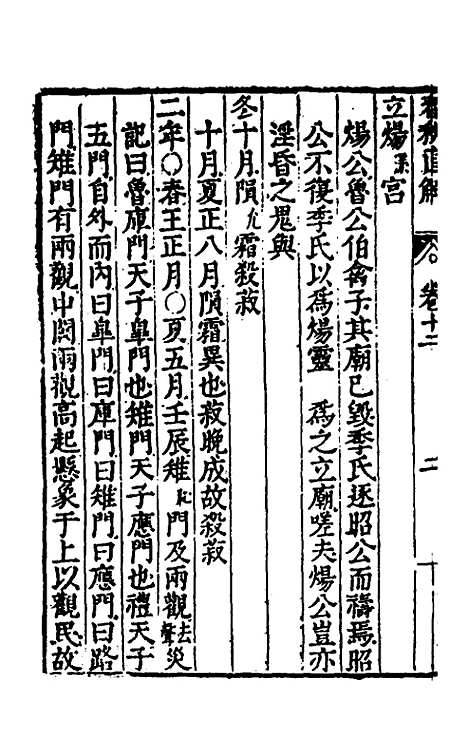 春秋直解 卷十二 二
立煬宮
煬公魯公伯禽子其廟已毀季氏逐昭公而禱焉昭
公不復季氏以為煬靈 為之立廟嗟夫煬公豈亦
淫昏之鬼與
冬十月隕霜殺菽
十月夏正八月隕霜異也菽晚成故殺菽
二年〇春王正月〇夏五月壬辰雉門及兩觀去聲災
記曰魯庫門天子臯門也雉門天子應門也禮天子
五門自外而內曰臯門曰庫門曰雉門曰應門曰路
門雉門有兩觀中闕兩觀高起懸象于上以觀民故